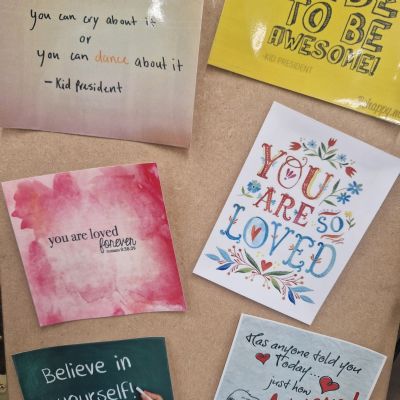 you can cry about it
or
you can dance about it
— Kid President
BE
TO BE
AWESOME!
-KID PRESIDENT
you are loved
forever
YOU
ARE SO
LOVED
Believe in
yourself!
Has anyone told you
Today...
just how